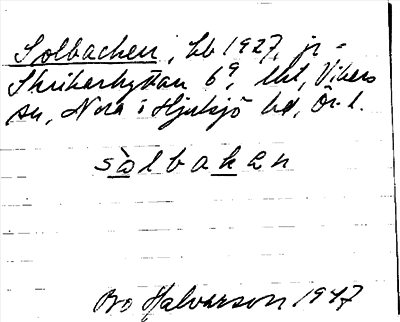 Solbacken, lb 1927, jr =
Skrikarhyttan 6⁹, lht, Vikers
sn, Nora o Hjulsjö hd, Ör. l.
sòlbakɘn
Bo Halvarson 1947